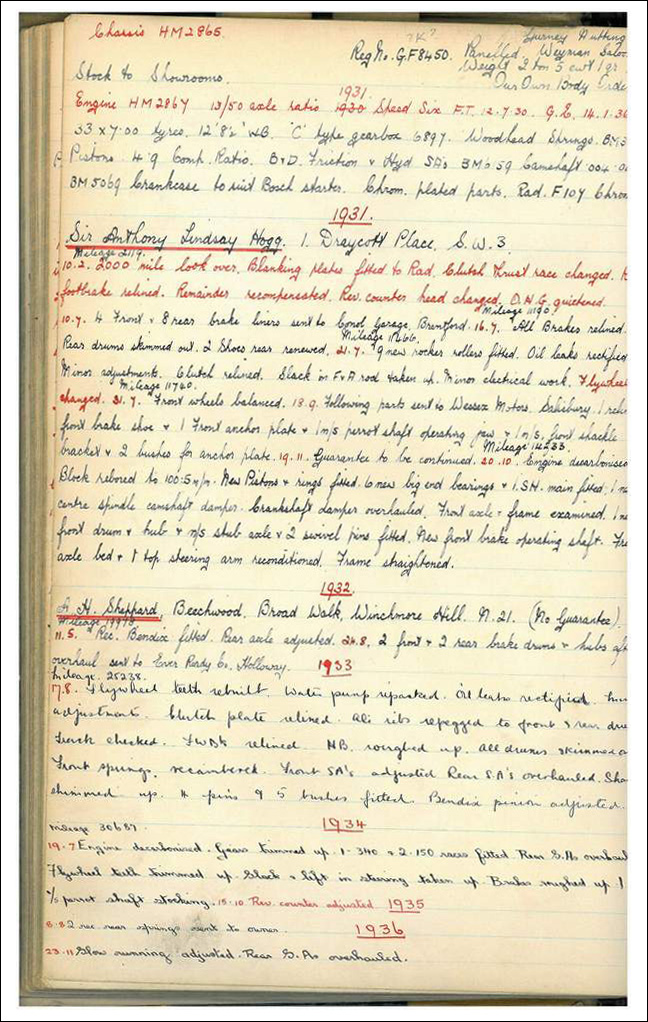 Chassis HM2865.
"K" Gurney Nutting
Reg No. GF8450. Panelled Weyman Saloo
Weight 2 ton 5 cwt 1 qr
Stock to Showrooms. Our Own Body Orde
1931.
Engine HM2867 13/50 axle ratio 1930 Speed Six F.T. 12.7.30. G.E. 14.1.3
33 x 7.00 tyres. 12' 8½" WB. 'C' type gearbox 6897. Woodhead Springs. BM5
Pistons 4.9 Comp. Ratio. B&D. Friction & Hyd SA's BM6159 Camshaft 004.0
BM5069 Crankcase to suit Bosch starter. Chrom. plated parts. Rad. F107 Chrom
1931.
Sir Anthony Lindsay Hogg. 1. Draycott Place, S.W.3
Mileage 2119.
10.2. 2000 mile look over. Blanking plates fitted to Rad. Clutch thrust race changed.
footbrake relined. Remainder recompensated. Rev. counter head changed. O.H.G. quietened.
Mileage 11190.
10.7. 4 Front & 8 rear brake liners sent to Garage, Brentford. 16.7. All Brakes relined.
Mileage 11666.
Rear drums skimmed out. 2 Shoes rear renewed. 21.7. 9 new rocker rollers fitted. Oil leaks rectified
Minor adjustments. Clutch relined. Slack in F&A rod taken up. Minor electrical work. Flywheel
Mileage 11740.
changed. 31.7. Front wheels balanced. 18.9. Following parts sent to Wessex Motors, Salisbury. 1
front brake shoe & 1 Front anchor plate & 1 n/s perrot shaft operating jaw & 1 n/s. front shackle
Mileage 14233.
bracket & 2 bushes for anchor plate. 19.11. Guarantee to be continued. 20.10. Engine decarbonised
Block rebored to 100.5 m/m. New Pistons & rings fitted. 6 new big end bearings & 1.SH. main fitted. 1 n
centre spindle camshaft damper. Crankshaft damper overhauled. Front axle & frame examined. 1 ne
front drum & hub & n/s stub axle & 2 swivel pins fitted. New front brake operating shaft. Fr
axle bed & 1 top steering arm reconditioned. Frame straightened.
1932
A. H. Sheppard, Beechwood, Broad Walk, Winchmore Hill. N.21. (No Guarantee).
Mileage
11.5. Rec. Bendix fitted. Rear axle adjusted. 24.8. 2 front & 2 rear brake drums & hubs aft
overhaul sent to Ever Ready Co. Holloway. 1933
Mileage. 25238.
17.8. Flywheel teeth rebuilt. Water pump repacked. Oil leaks rectified.
adjustments. Clutch plate relined. Ali ribs repegged to front & rear dru
Track checked. FWBk relined HB. roughed up. All drums skimmed o
Front springs recambered. Front SA's adjusted Rear S.A's overhauled. Sha
shimmed up. 4 pins & 5 bushes fitted. Bendix pinion adjusted.
Mileage 30687. 1934
19.7 Engine decarbonised. Gears trimmed up. 1-340 & 2-150 races fitted. Rear S.As overhaul
Flywheel teeth trimmed up. Slack & lift in steering taken up. Brakes roughed up. 1
n/s perrot shaft stocking. 15.10. Rev. counter adjusted 1935
8.8 2 rec rear springs sent to owner. 1936
23.11 Slow running adjusted. Rear S.As overhauled.